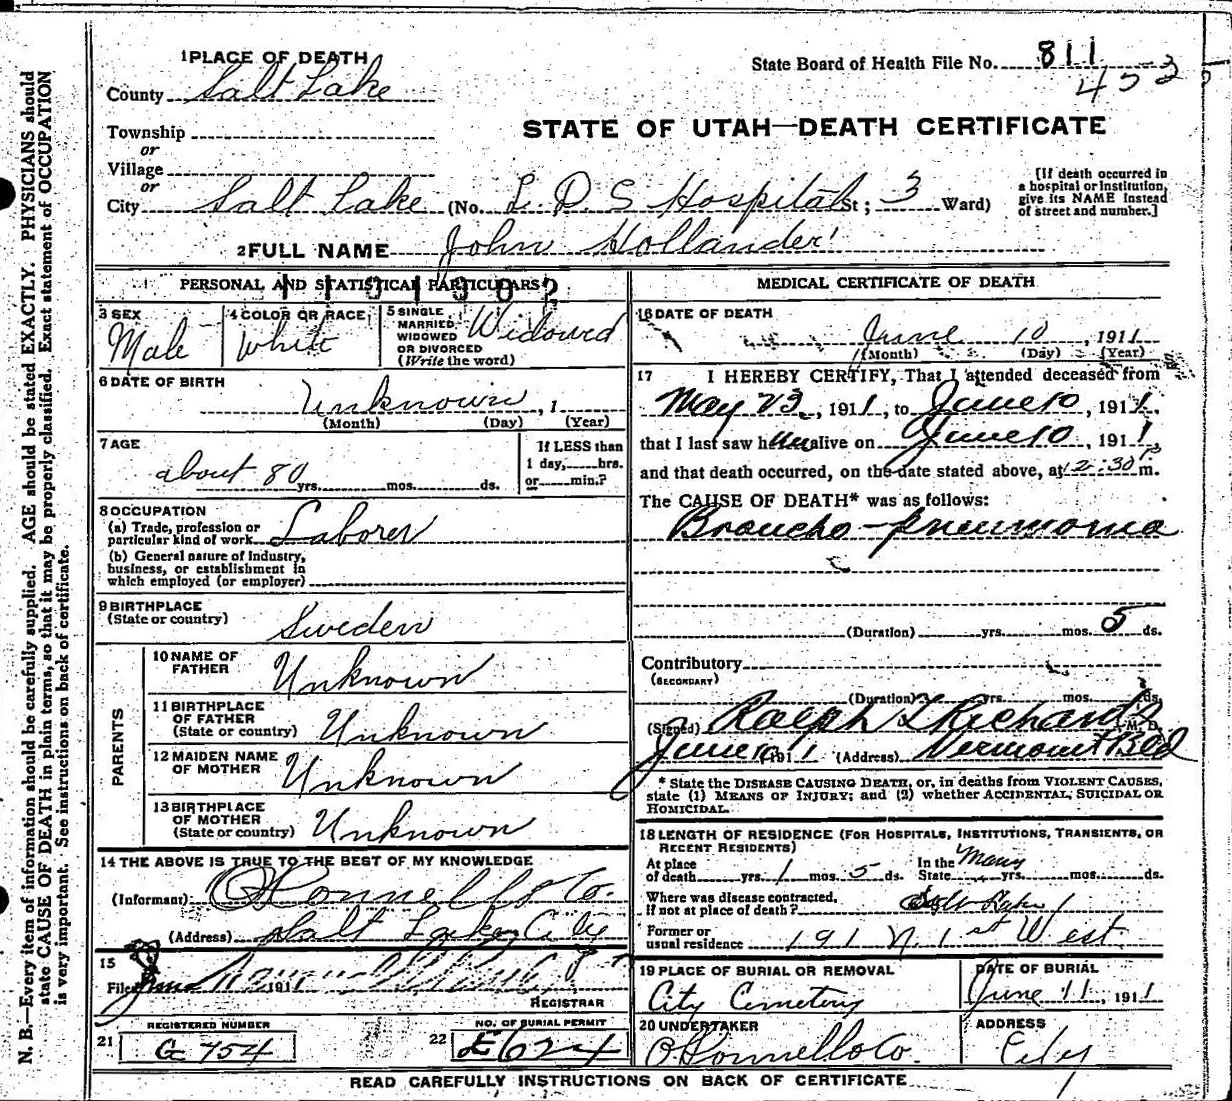 1 PLACE OF DEATH
State Board of Health File No. 811
County Salt Lake
Township
STATE OF UTAH—DEATH CERTIFICATE
or
Village
or
City Salt Lake (No. L. D. S Hospital St; 3 Ward)
[If death occurred in
a hospital or institution,
give its NAME instead
of street and number.]
2 FULL NAME John Hollander
PERSONAL AND STATISTICAL PARTICULARS
3 SEX
Male
4 COLOR OR RACE
White
5 SINGLE
MARRIED
WIDOWED
OR DIVORCED
(Write the word)
Widowed
6 DATE OF BIRTH
Unknown, 1
(Month) (Day) (Year)
7 AGE
about 80 yrs. mos. ds.
If LESS than
1 day, hrs.
or min.?
8 OCCUPATION
(a) Trade, profession or
particular kind of work Laborer
(b) General nature of Industry,
business, or establishment in
which employed (or employer)
9 BIRTHPLACE
(State or country) Sweden
PARENTS
10 NAME OF
FATHER Unknown
11 BIRTHPLACE
OF FATHER
(State or country) Unknown
12 MAIDEN NAME
OF MOTHER Unknown
13 BIRTHPLACE
OF MOTHER
(State or country) Unknown
14 THE ABOVE IS TRUE TO THE BEST OF MY KNOWLEDGE
(Informant) O'Donnell & Co.
(Address) Salt Lake City
15
Filed June 191
REGISTRAR
REGISTERED NUMBER
21 G 754
NO. OF BURIAL PERMIT
22 E624
MEDICAL CERTIFICATE OF DEATH
16 DATE OF DEATH
June 10, 1911
(Month) (Day) (Year)
17 I HEREBY CERTIFY, That I attended deceased from
May 23, 1911, to June 10, 1911,
that I last saw him alive on June 10, 1911,
and that death occurred, on the date stated above, at 12:30 P m.
The CAUSE OF DEATH* was as follows:
Broncho-pneumonia
(Duration) yrs. mos. 5 ds.
Contributory
(SECONDARY)
(Duration) yrs. mos. ds.
(Signed) Ralph T Richards M. D.
June 10 1911 (Address) Vermont Bld
* State the DISEASE CAUSING DEATH, or, in deaths from VIOLENT CAUSES,
state (1) MEANS OF INJURY; and (2) whether ACCIDENTAL, SUICIDAL OR
HOMICIDAL.
18 LENGTH OF RESIDENCE (FOR HOSPITALS, INSTITUTIONS, TRANSIENTS, OR
RECENT RESIDENTS)
At place
of death yrs. 1 mos. 5 ds.
In the
State Many yrs. mos. ds.
Where was disease contracted,
if not at place of death? Salt Lake
Former or
usual residence 191 N. 1st West
19 PLACE OF BURIAL OR REMOVAL
City Cemetery
DATE OF BURIAL
June 11, 1911
20 UNDERTAKER
O'Donnell & Co.
ADDRESS
City
READ CAREFULLY INSTRUCTIONS ON BACK OF CERTIFICATE
N. B.—Every item of information should be carefully supplied. AGE should be stated EXACTLY. PHYSICIANS should
state CAUSE OF DEATH in plain terms, so that it may be properly classified. Exact statement of OCCUPATION
is very important. See instructions on back of certificate.